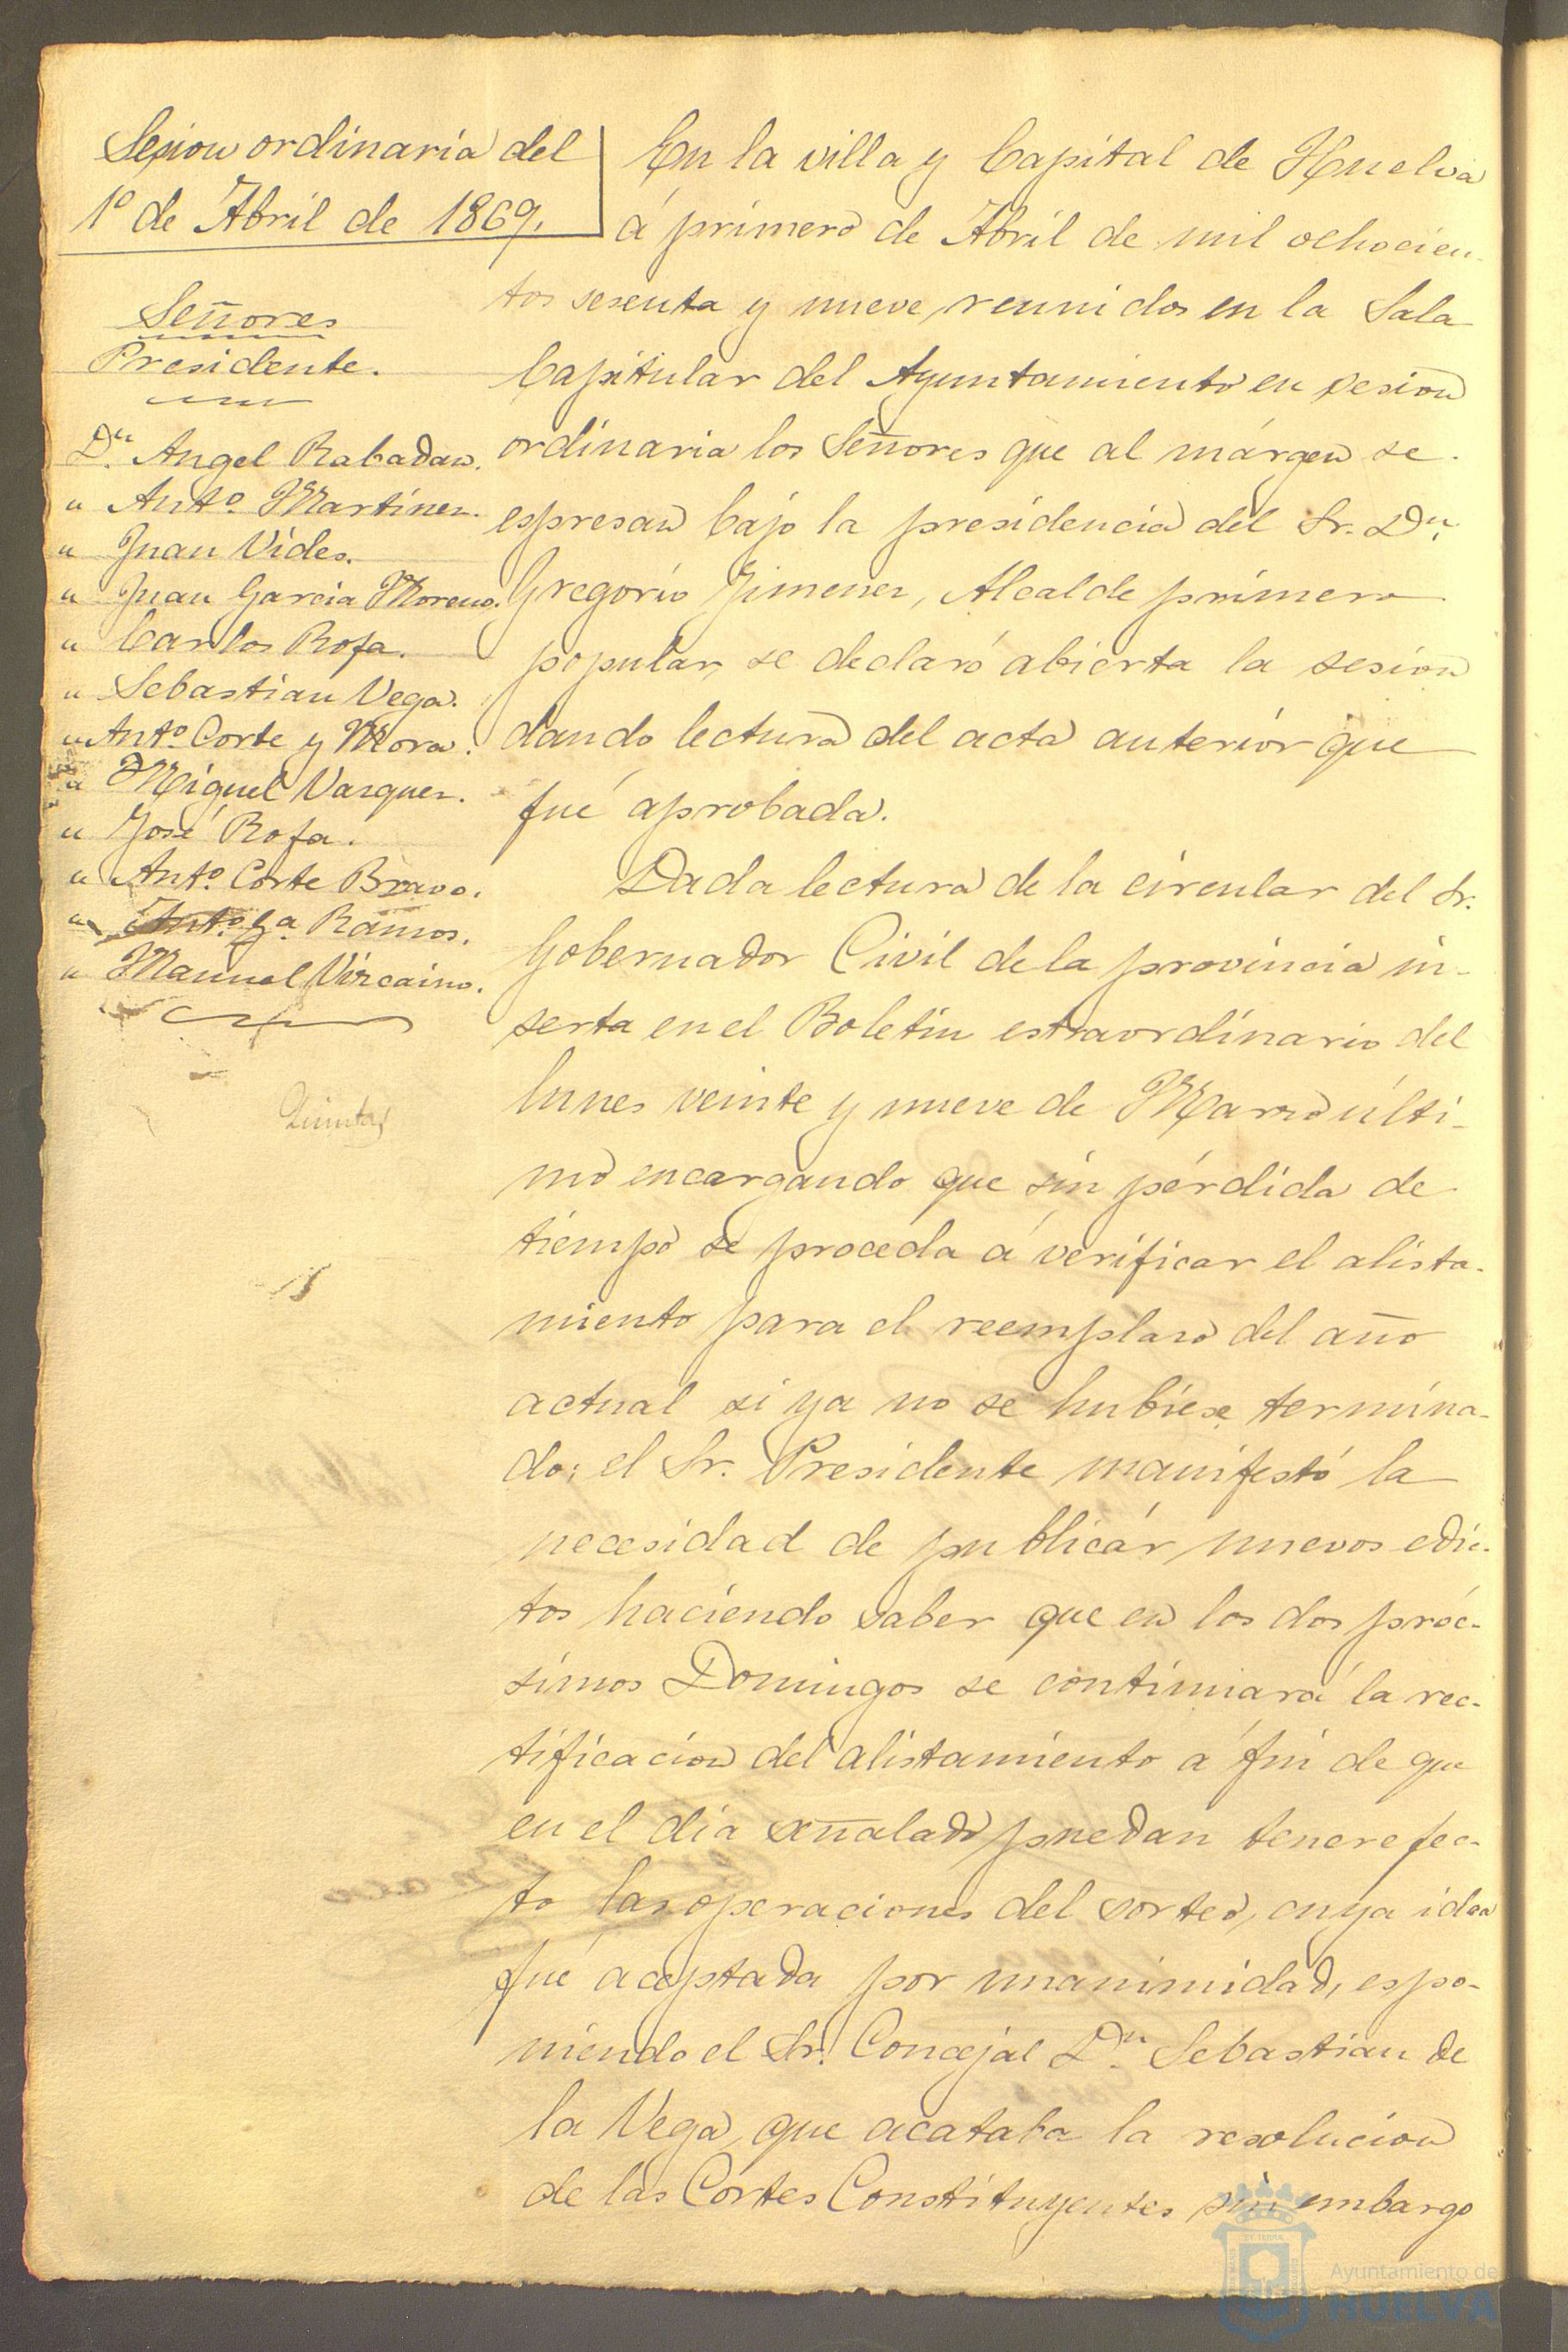 Sesion ordinaria del
1º de Abril de 1869.
Señores
Presidente.
Dn. Angel Rabadan.
" Antº Martinez.
" Juan Vides.
" Juan Garcia Moreno.
" Carlos Rofa.
" Sebastian Vega.
" Antº Corte y Mora.
" Miguel Vazquez.
" José Rofa.
" Antº Corte Bravo.
" Antº Gª Ramos.
" Manuel Vizcaino.
Quintas
En la villa y Capital de Huelva
á primero de Abril de mil ochocien-
tos sesenta y nueve, reunidos en la Sala
Capitular del Ayuntamiento en sesion
ordinaria los Señores que al márgen se
espresan bajo la presidencia del Sr. Dn.
Gregorio Jimenez, Alcalde primero
popular, se declaró abierta la sesion
dando lectura del acta anterior que
fué aprobada.
Dada lectura de la circular del Sr.
Gobernador Civil de la provincia in-
serta en el Boletin estraordinario del
lunes veinte y nueve de Marzo últi-
mo encargando que sin pérdida de
tiempo se proceda á verificar el alista-
miento para el reemplazo del año
actual si ya no se hubiese termina-
do; el Sr. Presidente manifestó la
necesidad de publicár nuevos edic-
tos haciendo saber que en los dos próc-
simos Domingos se continuará la rec-
tificacion del alistamiento á fin de que
en el dia señalado puedan tener efec-
to las operaciones del sorteo, cuya idea
fué aceptada por unanimidad, espo-
niendo el Sr. Concejal Dn. Sebastian de
la Vega, que acataba la resolucion
de las Córtes Constituyentes sin embargo
Ayuntamiento de
HUELVA